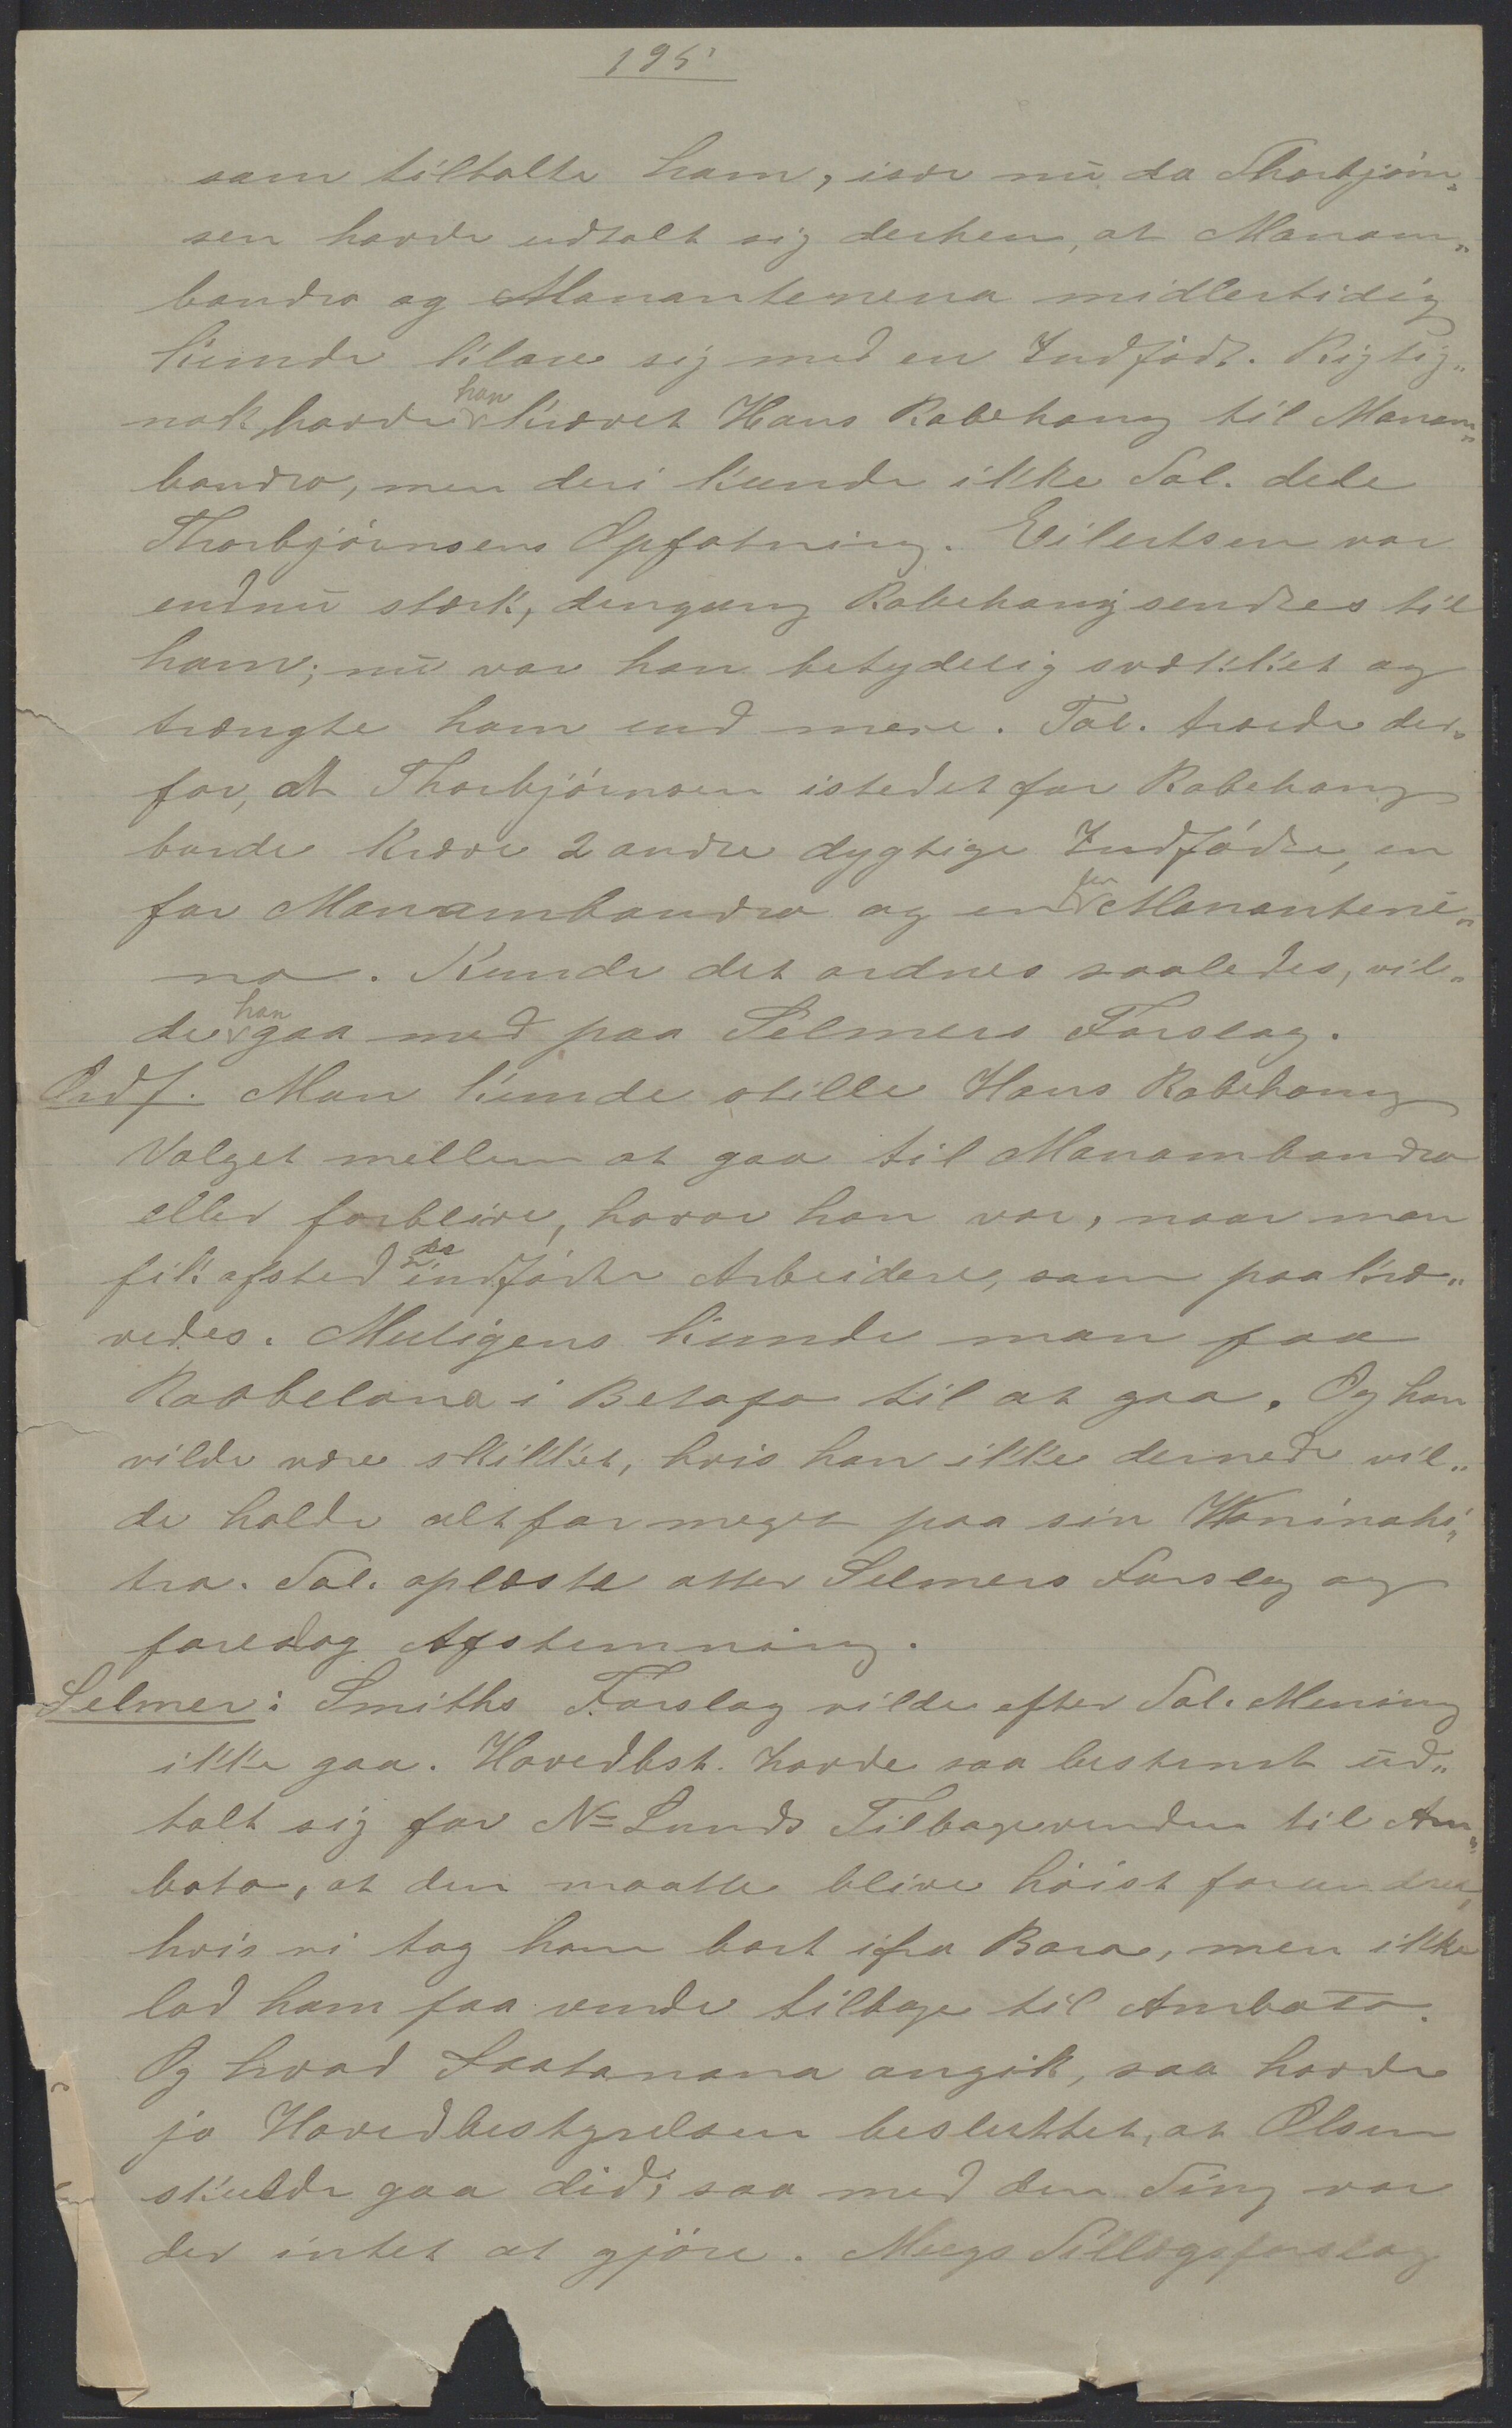 195
som tiltalte ham, især nu da Thorbjörn„
sen havde udtalt sig derhen, at Manam„
bandro og Manantenena midlertidig
kunde klare sig med en Indfödt. Rigtig„
nok havde han krævet Hans Rabehang til Manam„
bandro, men deri kunde ikke Tal. dele
Thorbjörnsens Opfatning. Eilertsen var
endnu stærk, dengang Rabehang sendtes til
ham; nu var han betydelig svækket og
trængte ham end mere. Tal. troede der„
for, at Thorbjörnsen istedet for Rabehang
burde kræve 2 andre dygtige Indfödte, en
for Manambandro og en for Manantene„
na. Kunde det ordnes saaledes, vil„
de han gaa med paa Selmers Forslag.
Ordf. Man kunde stille Hans Rabehang
Valget mellem at gaa til Manambandro
eller forblive, hvor han var, naar man
fik afsted de indfödte Arbeidere, som paakræ„
vedes. Muligens kunde man faa
Rabbelana i Betafo til at gaa. Og han
vilde være skikket, hvis han ikke dernede vil„
de holde altfor meget paa sin Vaninahi„
tra. Tal. oplæste atter Selmers Forslag og
foreslog Afstemning.
Selmer: Smiths Forslag vilde efter Tal. Mening
ikke gaa. Hovedbst. havde saa bestemt ud„
talt sig for N= Lunds Tilbagevenden til Am„
bato, at den maatte blive höist forundret,
hvis vi tog ham bort ifra Bara, men ikke
lod ham faa vende tilbage til Ambato.
Og hvad Soatanana angik, saa havde
jo Hovedbestyrelsen besluttet, at Olsen
skulde gaa did; saa med den Ting var
der intet at gjöre. Meegs Tillægsforslag